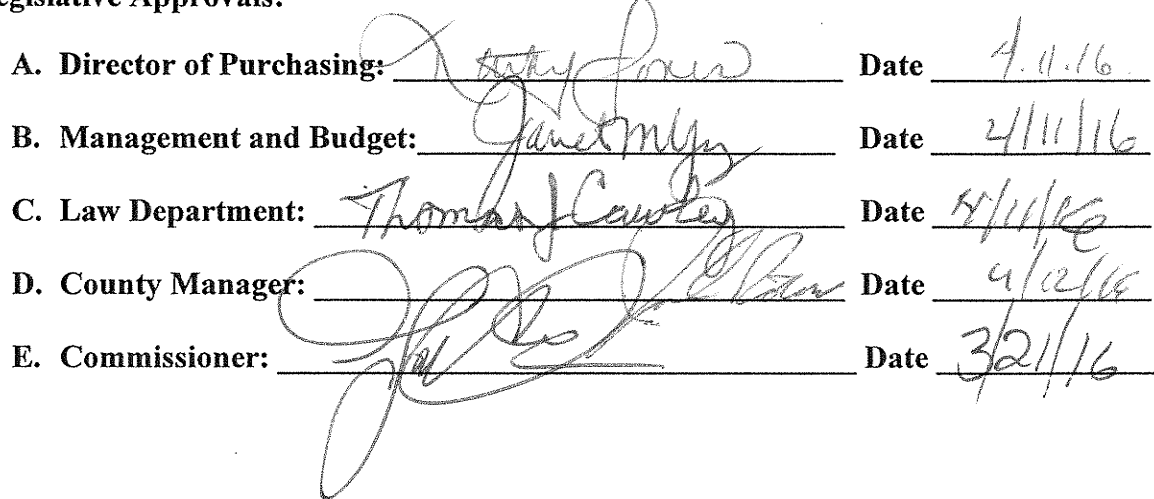 egislative Approvals:
A. Director of Purchasing: Kathy Jones Date 4.11.16
B. Management and Budget: Janet M Date 4/11/16
C. Law Department: Thomas J Cawley Date 4/11/16
D. County Manager: Date 4/12/16
E. Commissioner: Date 3/21/16